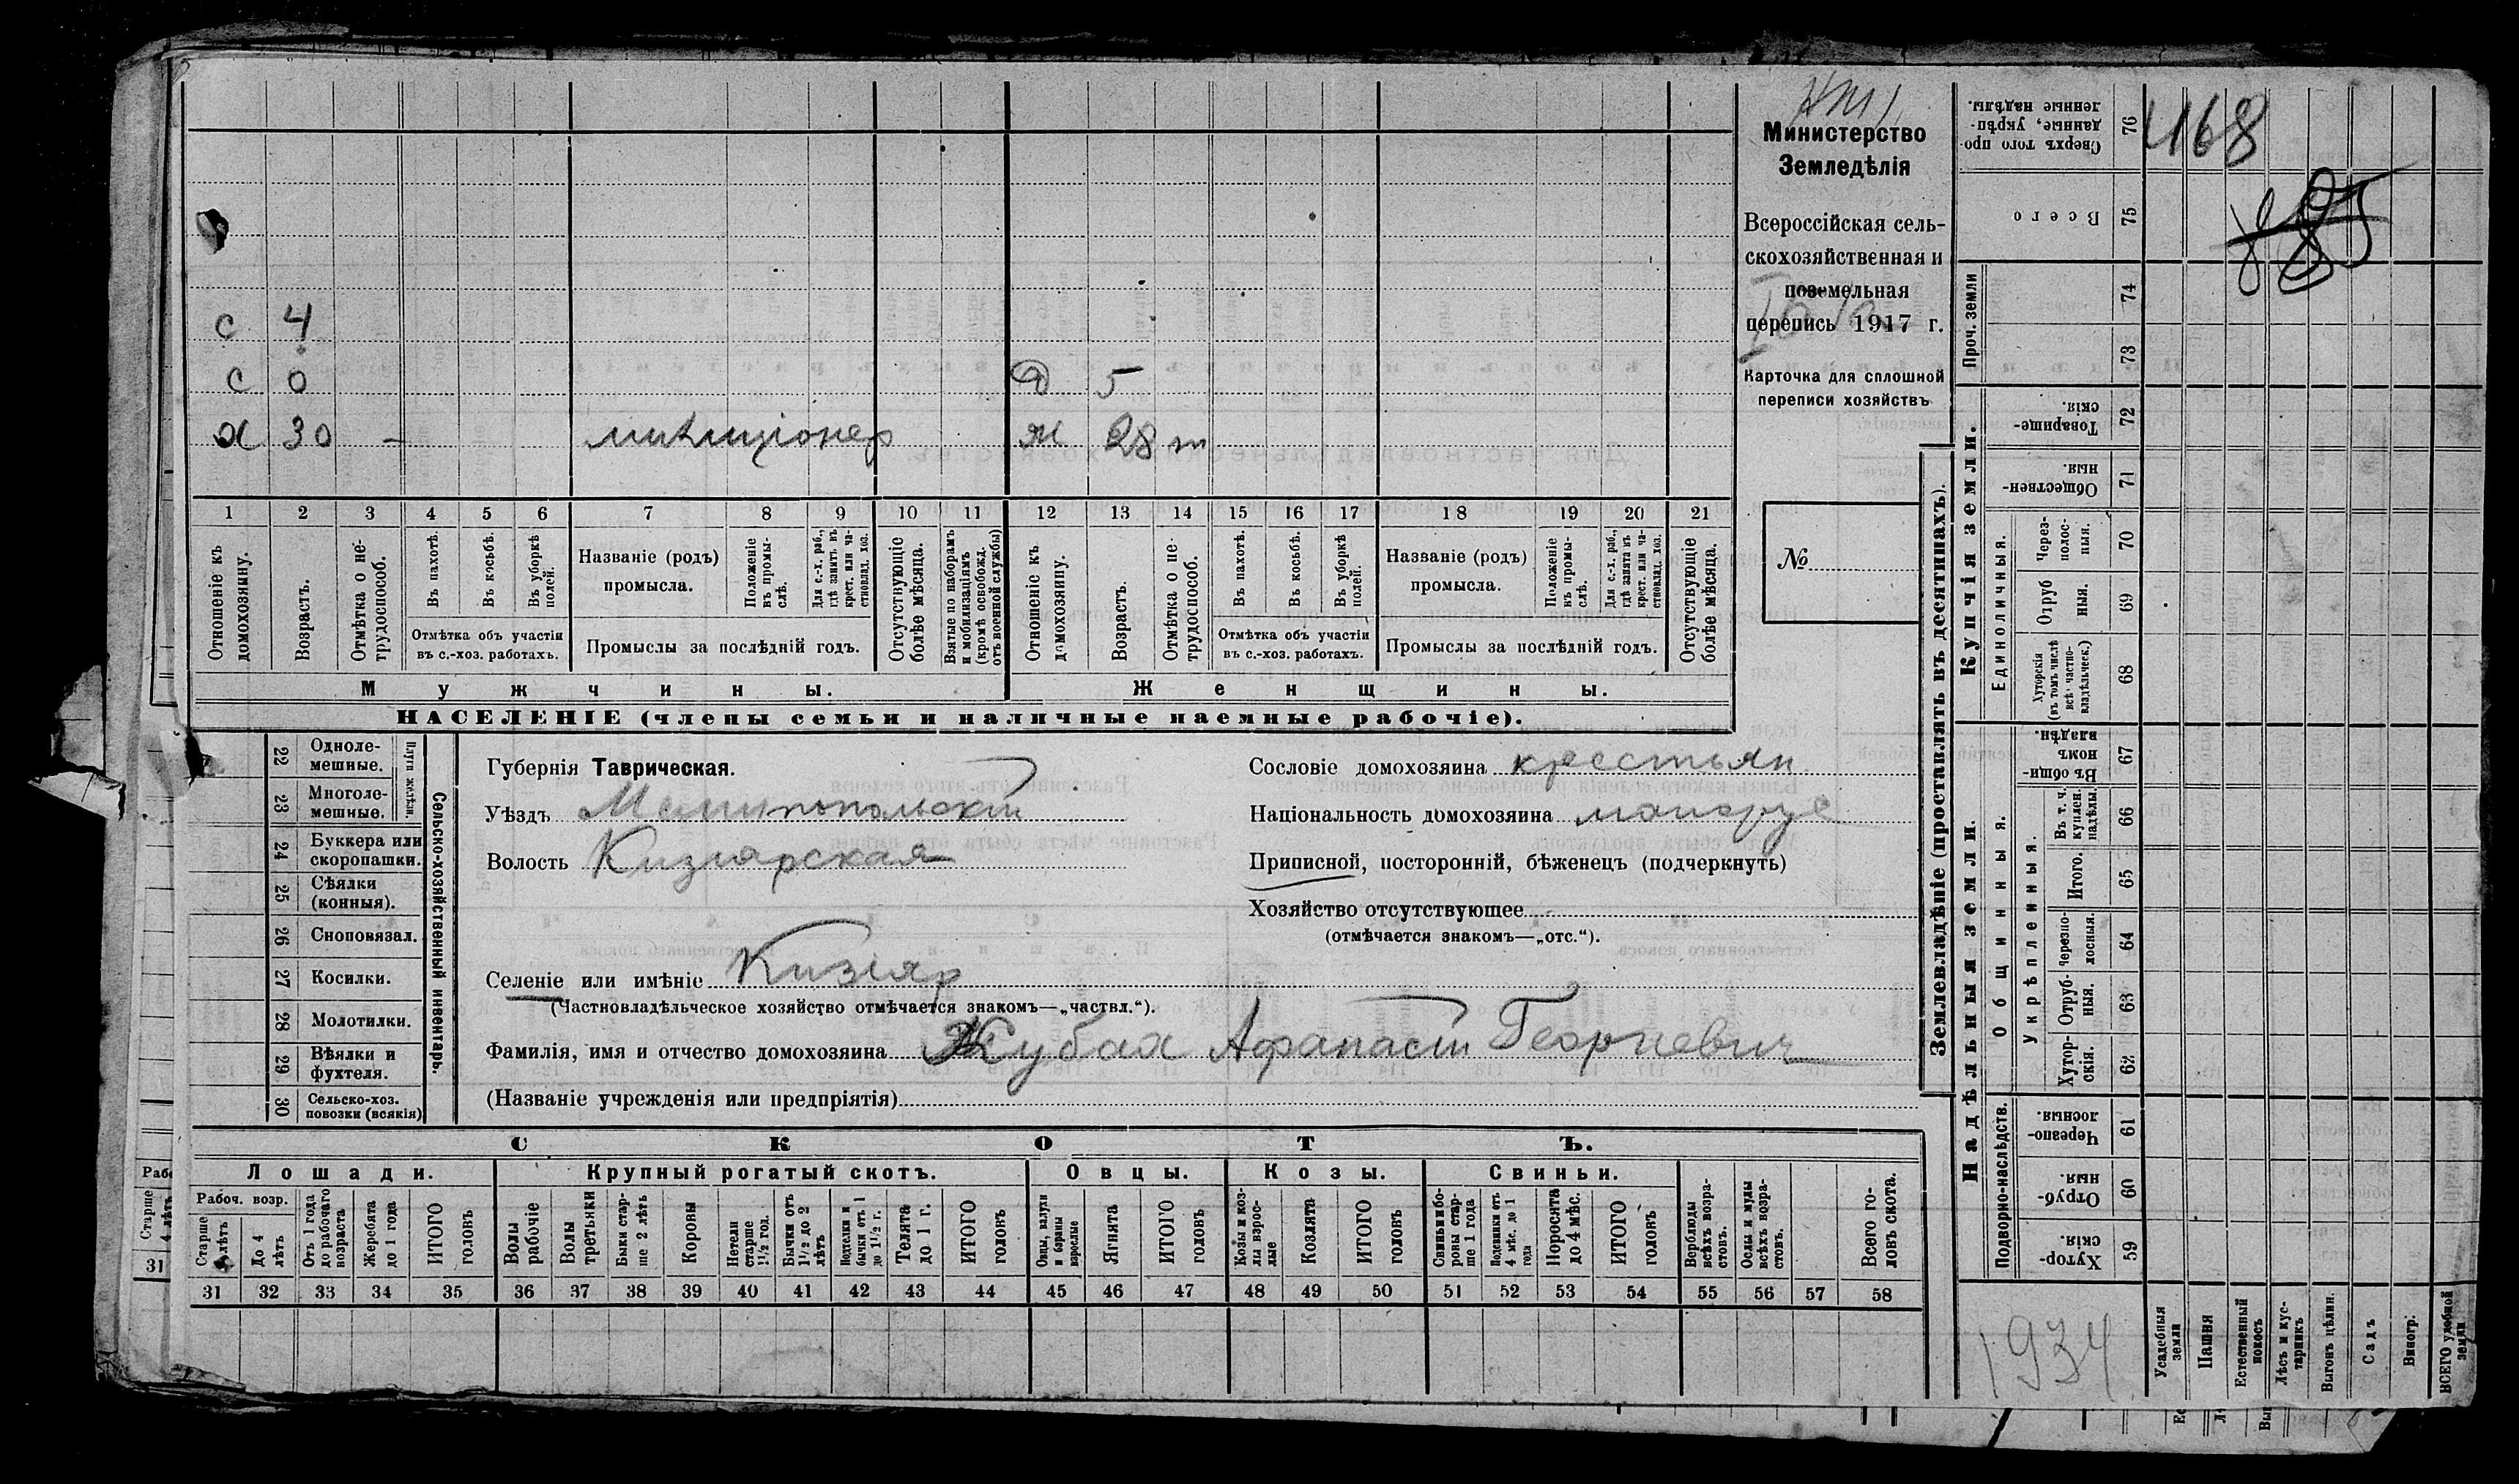 Министерство
Земледѣлія
Всероссійская сель-
скохозяйственная и
поземельная
перепись 1917 г.
Карточка для сплошной
переписи хозяйствъ
№
с 4
с 0 Д 5
х 30 – милиціонер ж 28 т
1 2 3 4 5 6 7 8 9 10 11 12 13 14 15 16 17 18 19 20 21
Отношеніе къ домохозяину.
Возрастъ.
Отмѣтка о не-трудоспособ.
Въ пахотѣ.
Въ косьбѣ.
Въ уборкѣ полей.
Отмѣтка объ участіи
въ с.-хоз. работахъ.
Названіе (родъ)
промысла.
Положеніе въ промы-слѣ.
Для с.-х. раб., гдѣ занятъ въ крест. или ча-стновлад. хоз.
Промыслы за послѣдній годъ.
Отсутствующіе болѣе мѣсяца.
Взятые по наборамъ и мобилизаціямъ (кромѣ освобожд. отъ военной службы)
Отношеніе къ домохозяину.
Возрастъ.
Отмѣтка о не-трудоспособ.
Въ пахотѣ.
Въ косьбѣ.
Въ уборкѣ полей.
Отмѣтка объ участіи
въ с.-хоз. работахъ.
Названіе (родъ)
промысла.
Положеніе въ промы-слѣ.
Для с.-х. раб., гдѣ занята въ крест. или ча-стновлад. хоз.
Промыслы за послѣдній годъ.
Отсутствующіе болѣе мѣсяца.
Мужчины. Женщины.
НАСЕЛЕНІЕ (члены семьи и наличные наемные рабочіе).
22 Одноле-мешные.
23 Многоле-мешные.
Плуги желѣзн.
24 Буккера или скоропашки.
25 Сѣялки (конныя).
26 Сноповязал.
27 Косилки.
28 Молотилки.
29 Вѣялки и фухтеля.
30 Сельско-хоз. повозки (всякія)
Сельско-хозяйственный инвентарь.
Губернія Таврическая.
Уѣздъ Мелитопольскій
Волость Кизіярская
Селеніе или имѣніе Кизіяр
(Частновладѣльческое хозяйство отмѣчается знакомъ—„частвл.“).
Фамилія, имя и отчество домохозяина Жубах Афанасій Георгіевич
(Названіе учрежденія или предпріятія)
Сословіе домохозяина крестьян
Національность домохозяина малорус
Приписной, посторонній, бѣженецъ (подчеркнуть)
Хозяйство отсутствующее
(отмѣчается знакомъ—„отс.“).
СКОТЪ.
Лошади. Крупный рогатый скотъ. Овцы. Козы. Свиньи.
Рабоч. возр.
Старше 4 лѣтъ
До 4 лѣтъ
Отъ 1 года до рабочаго возраста
Жеребята до 1 года
ИТОГО головъ
Волы рабочіе
Волы третьяки
Быки стар-ше 2 лѣтъ
Коровы
Нетели старше 1½ год.
Бычки отъ 1½ до 2 лѣтъ
Подтелки и бычки отъ 1 до 1½ г.
Телята до 1 г.
ИТОГО головъ
Овцы, валухи и бараны взрослые
Ягнята
ИТОГО головъ
Козы и коз-лы взрос-лые
Козлята
ИТОГО головъ
Свиньи и бо-ровы стар-ше 1 года
Подсвинки отъ 4 мѣс. до 1 года
Поросята до 4 мѣс.
ИТОГО головъ
Верблюды всѣхъ возра-стовъ.
Ослы и мулы всѣхъ возра-стовъ.
Всего го-ловъ скота.
31 32 33 34 35 36 37 38 39 40 41 42 43 44 45 46 47 48 49 50 51 52 53 54 55 56 57 58
Землевладѣніе (проставлять въ десятинахъ).
Надѣльныя земли. Купчія земли.
Проч. земли
Подворно-наслѣдств.
Общинныя.
Укрѣпленныя.
Единоличныя.
76 Сверхъ того про-данные, укрѣп-ленные надѣлы.
75 Всего
74
73
72 Товарище-скія.
71 Обществен-ныя.
70 Через-полос-ныя.
69 Отруб ныя.
68 Хуторскія (въ томъ числѣ всѣ частно-владѣльческ.)
67 Въ общин-номъ владѣн.
66 Въ т. ч. куплен. надѣлы.
65 Итого.
64 Черезпо-лосныя.
63 Отруб-ныя.
62 Хутор-скія.
61 Черезпо-лосныя.
60 Отруб-ныя.
59 Хутор-скія.
Усадебныя земли
Пашня
Естественный покосъ
Лѣсъ и кус-тарникъ
Выгонъ цѣлин.
Садъ
Виногр.
ВСЕГО удобной земли
468
1934
Старше 4 лѣтъ
31